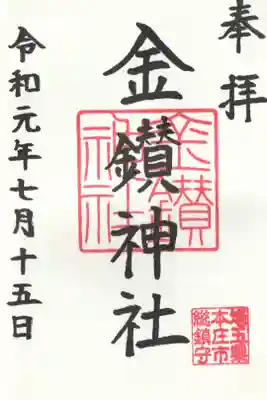 奉拝
金鑚神社
令和元年七月十五日
金鑚神社
児玉郡
本庄市
総鎮守